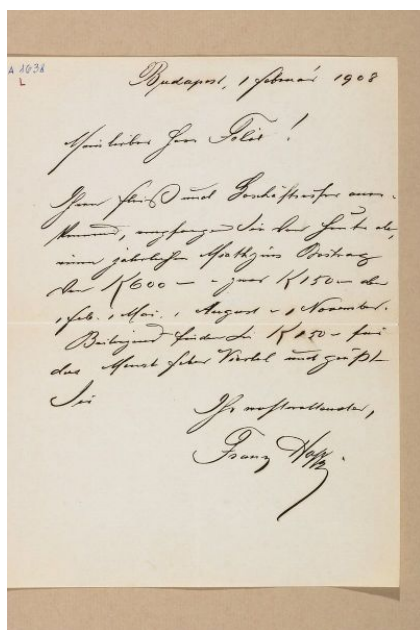 A 1036
Budapest, 1 Februar 1908
Mein lieber Herr Felix!
Ihren Fleiß und Geschäftseifer aner-
kennend, empfangen Sie von heute ab,
einen jährlichen Mietzins Beitrag
von K 600 — zwar K 150 — den
1 Feb. 1 Mai. 1 August 1 November.
Beiliegend finden Sie K 150 — für
das Februar Viertel und grüßt
Sie
Ihr wohlwollender,
Franz Hopp